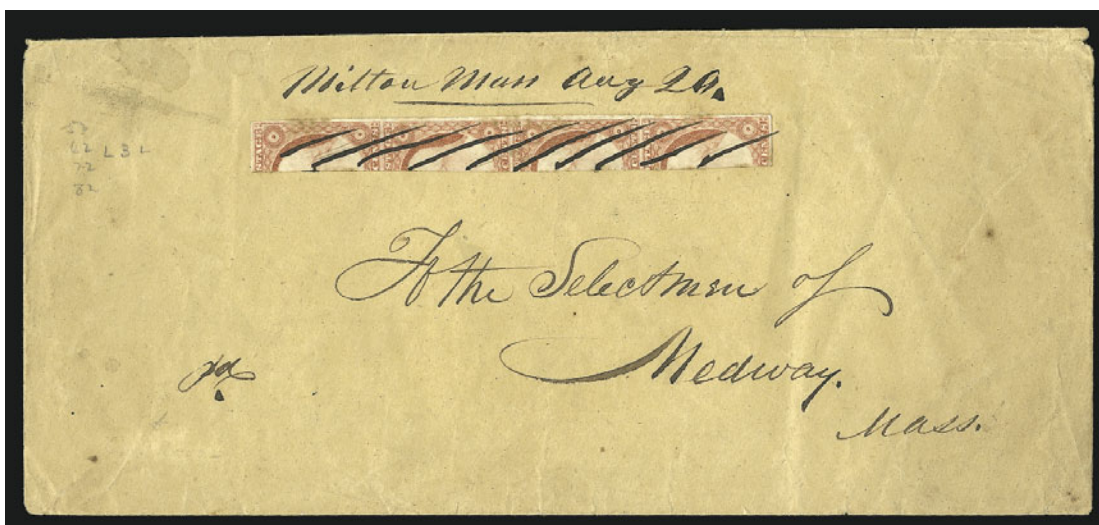 Milton Mass Aug 20.
52
62 L 3 L
72
82
To the Selectmen of
Medway.
Mass.